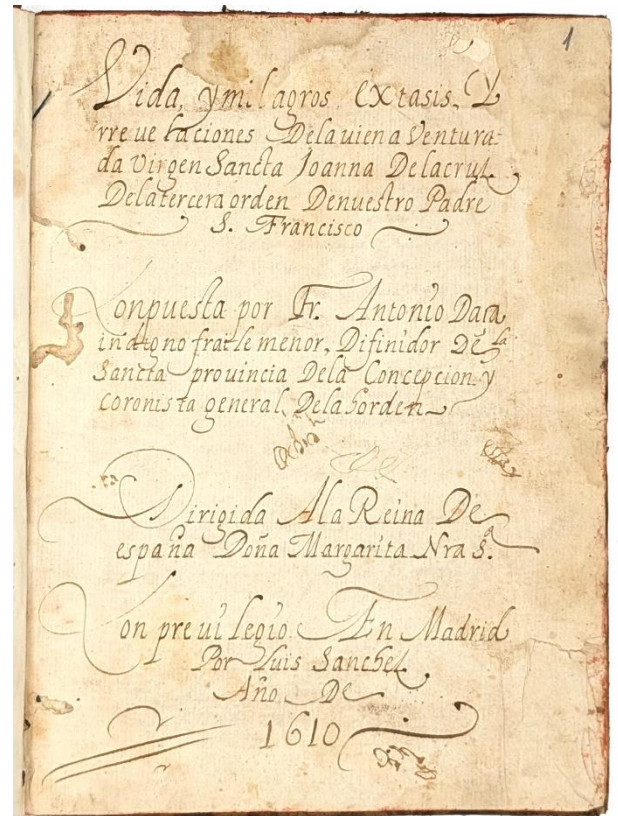 1
Vida, y milagros, extasis, Y
rreuelaciones Dela uiena Ventura-
da Virgen Sancta Joanna Delacruz.
Dela tercera orden Denuestro Padre
S. Francisco
Conpuesta por Fr. Antonio Daça
indigno fraile menor, Difinidor De la
Sancta prouincia Dela Concepcion y
coronista general Dela horden
Dirigida A la Reina De
españa Doña Margarita Nra Sª.
Con preuilegio. En Madrid
Por Luis Sanchez
Año De
1610